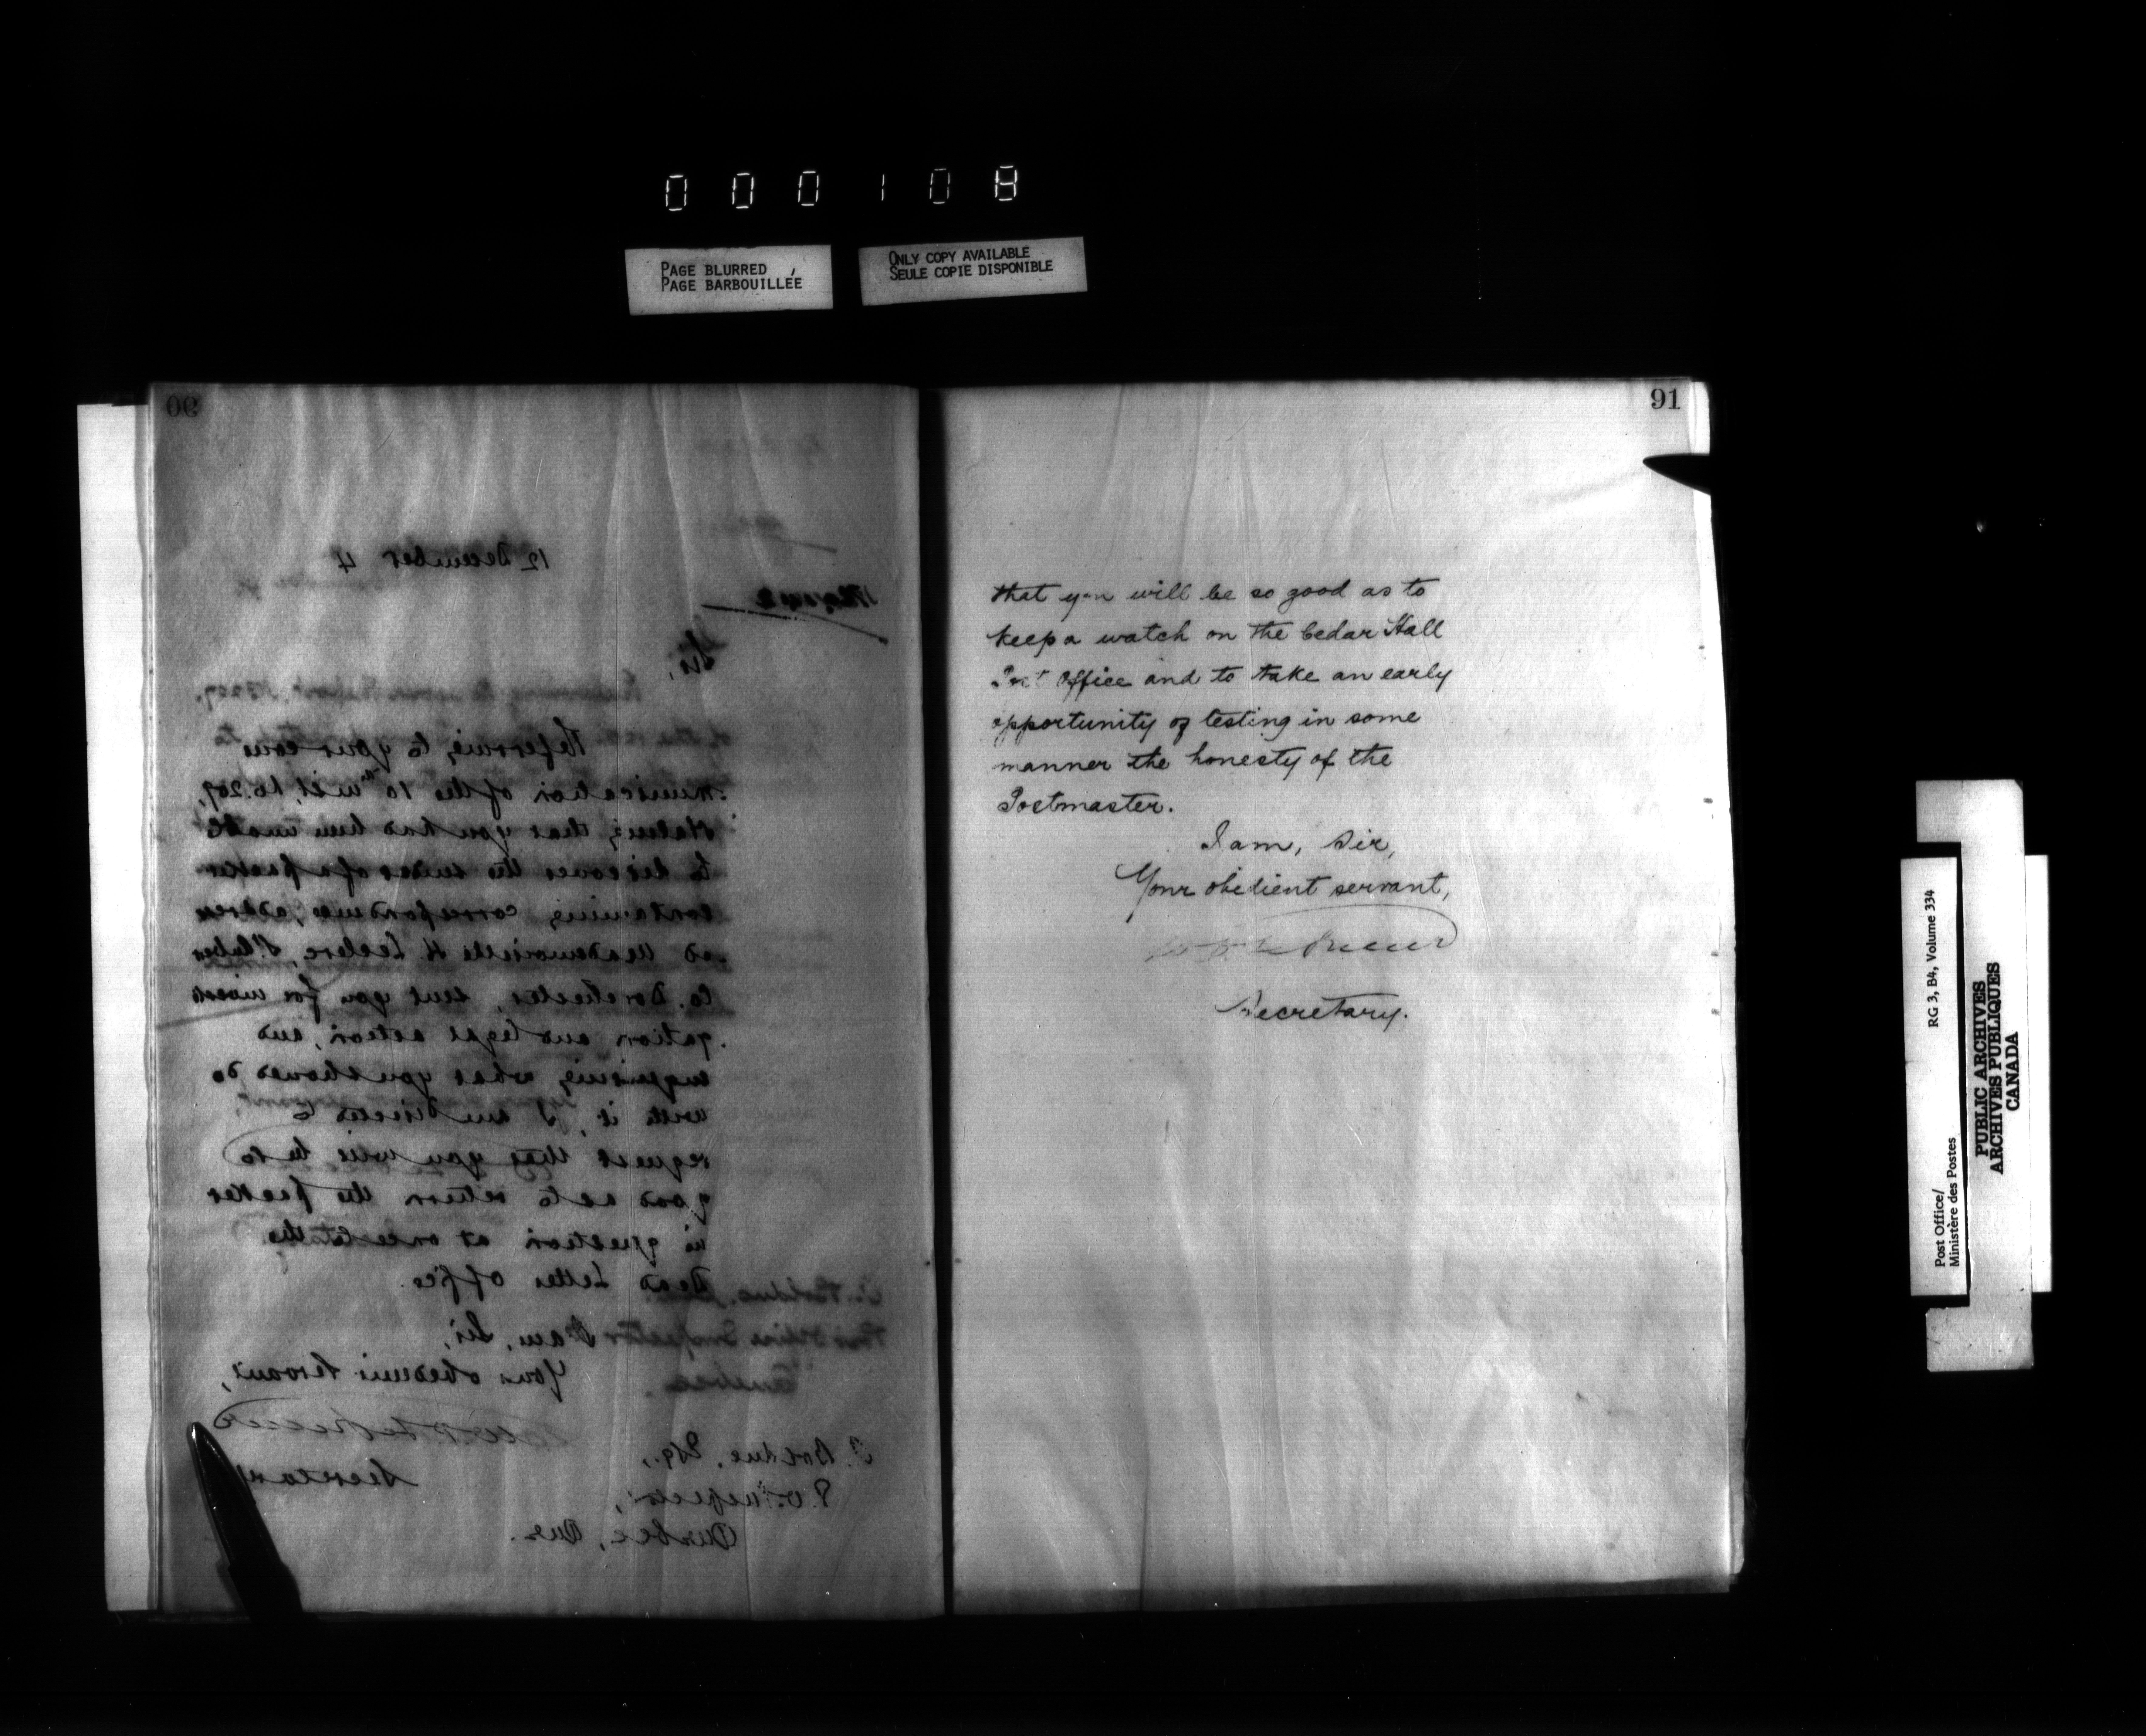 000108
PAGE BLURRED
PAGE BARBOUILLÉE
ONLY COPY AVAILABLE
SEULE COPIE DISPONIBLE
90
12 December 4
Sir,
Referring to your com
munication of the 10th inst., No. 207,
stating that you had been unable
to discover the sender of a packet
containing correspondence, address
ed Mademoiselle H. Leclerc,
Co. Dorchester, sent you for investi
gation and legal action, and
enquiring what you should do
with it, I am directed to
request that you will be so
good as to return the packet
in question at once to the
Dead Letter Office.
I am, Sir,
Your obedient servant,
Secretary
Bolduc, Esq.,
P.O. Inspector,
Quebec, Que.
91
that you will be so good as to
keep a watch on the Cedar Hall
Post Office and to take an early
opportunity of testing in some
manner the honesty of the
Postmaster.
I am, Sir,
Your obedient servant,
Secretary.
Post Office/
Ministère des Postes
RG 3, B4, Volume 334
PUBLIC ARCHIVES
ARCHIVES PUBLIQUES
CANADA